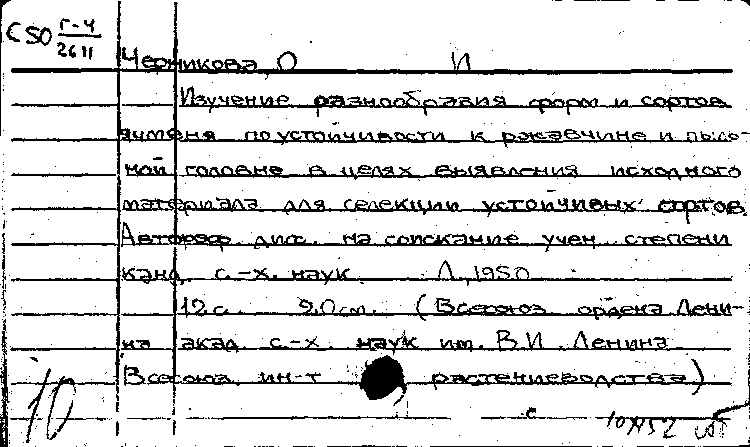 С50 Г-4
2611
Черникова, О И
Изучение разнообразия форм и сортов
ячменя по устойчивости к ржавчине и пыль-
ной головне в целях выявления исходного
материала для селекции устойчивых сортов.
Автореф. дис. на соискание учен. степени
канд. с.-х. наук Л., 1950
12 с. 20 см. (Всесоюз. ордена Лени-
на акад. с.-х. наук им. В.И. Ленина
Всесоюз. ин-т растениеводства)
10